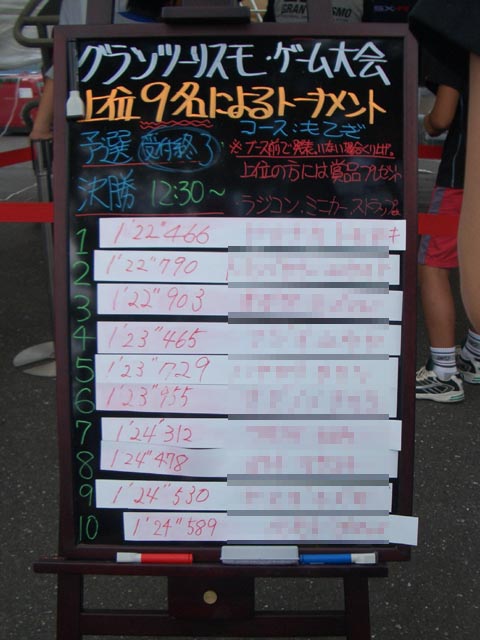 グランツーリスモ・ゲーム大会
上位9名によるトーナメント
予選 受付終了
コース:もてぎ
※ブース前で発表。いない場合くり上げ。
決勝 12:30～
上位の方には賞品プレゼント
ラジコン、ミニカー、ストラップ
1 1'22"466
2 1'22"790
3 1'22"903
4 1'23"465
5 1'23"729
6 1'23"955
7 1'24"312
8 1'24"478
9 1'24"530
10 1'24"589
GRAN